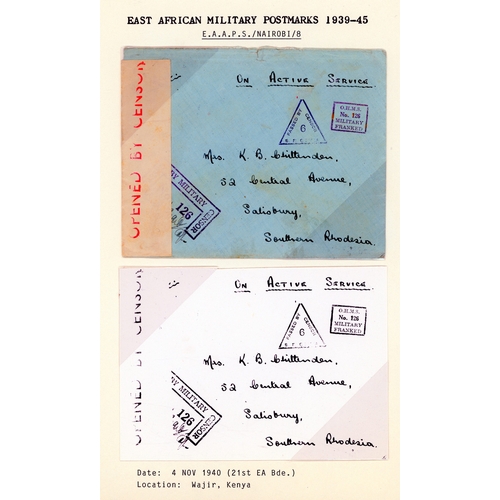 EAST AFRICAN MILITARY POSTMARKS 1939-45
E.A.A.P.S./NAIROBI/8
OPENED BY CENSOR
ON ACTIVE SERVICE
PASSED BY CENSOR
6
O.H.M.S.
No. 126
MILITARY
FRANKED
Mrs. K. B. Chittenden,
52 Central Avenue,
Salisbury,
Southern Rhodesia.
BY MILITARY
126
CENSOR
OPENED BY CENSOR
ON ACTIVE SERVICE
PASSED BY CENSOR
6
O.H.M.S.
No. 126
MILITARY
FRANKED
Mrs. K. B. Chittenden,
52 Central Avenue,
Salisbury,
Southern Rhodesia.
BY MILITARY
126
CENSOR
Date: 4 NOV 1940 (21st EA Bde.)
Location: Wajir, Kenya